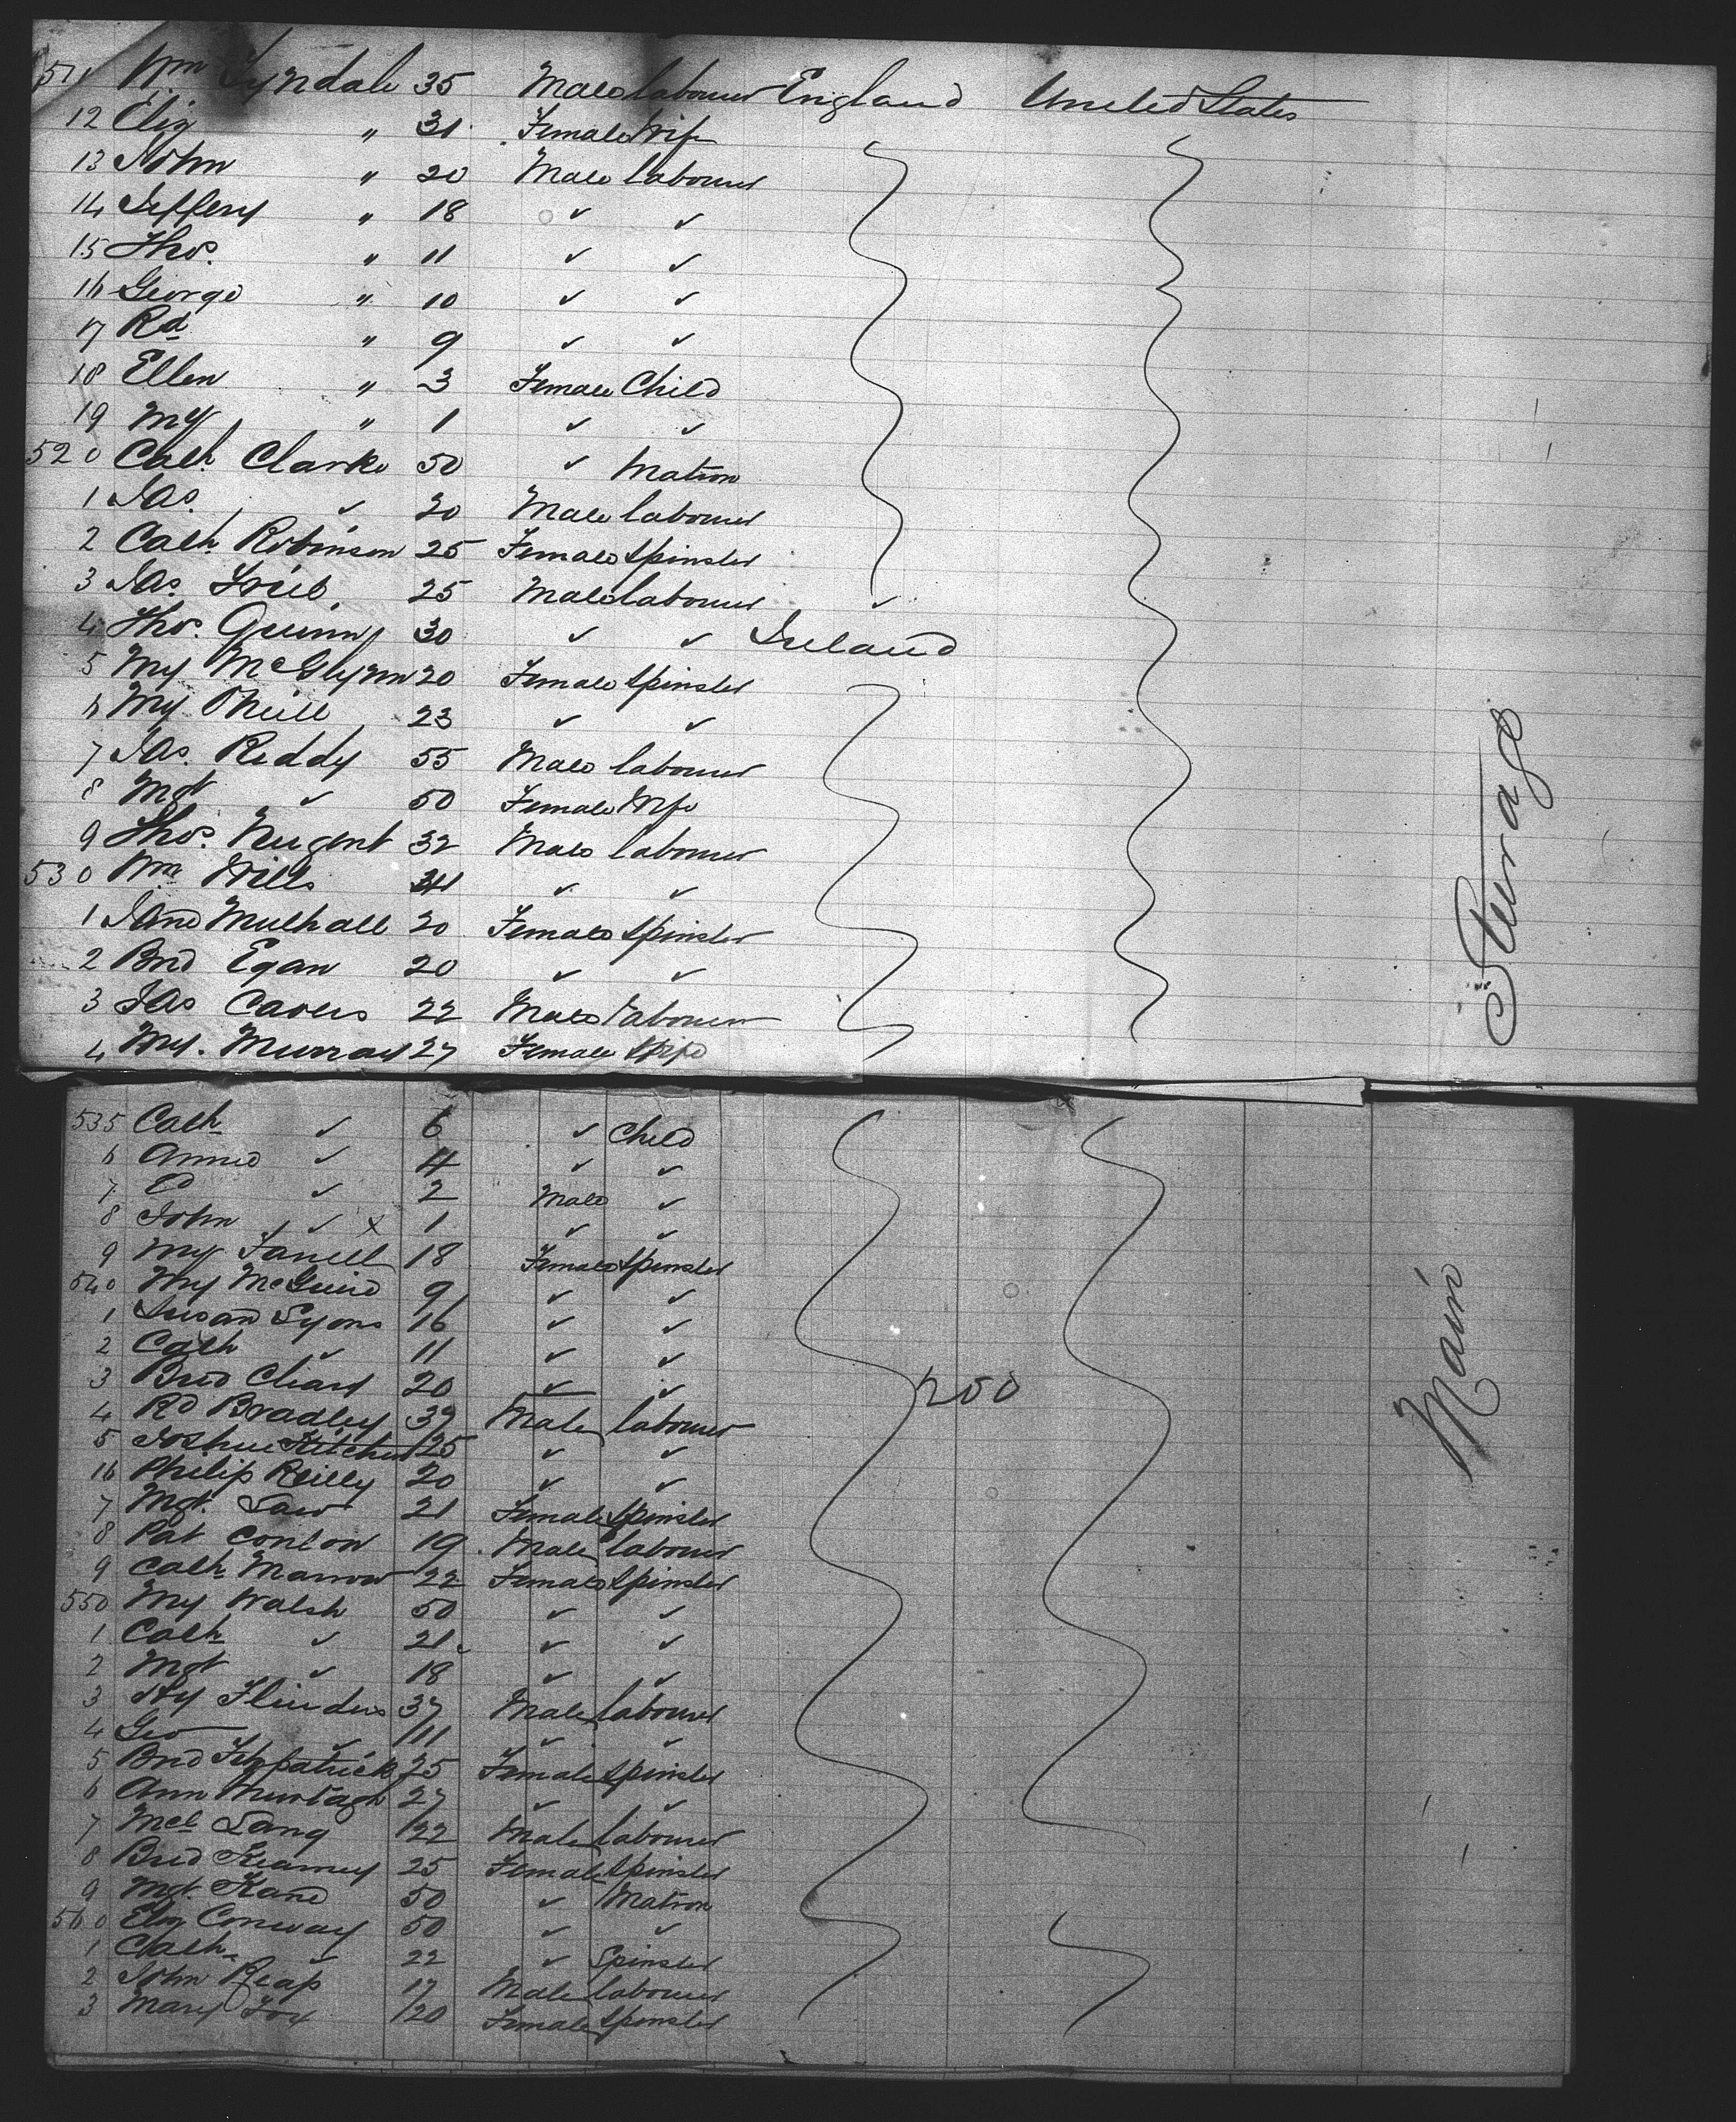 511 Wm Tyndale 35 Male labourer England United States
12 Eliz " 31 Female Wife
13 John " 20 Male labourer
14 Jeffery " 18 ✓ ✓
15 Thos. " 11 ✓ ✓
16 George " 10 ✓ ✓
17 Rd " 9 ✓ ✓
18 Ellen " 3 Female Child
19 My " 1 ✓ ✓
520 Cath Clarke 50 ✓ Matron
1 Jas. ✓ 20 Male labourer
2 Cath Robinson 25 Female Spinster
3 Jas. 25 Male labourer ✓
4 Thos. Quinn 30 ✓ ✓ Ireland
5 My McGlynn 20 Female Spinster
6 My ONeill 23 ✓ ✓
7 Jas. Reddy 55 Male labourer
8 Mgt ✓ 50 Female Wife
9 Thos. Nugent 32 Male labourer
530 Wm Wills ✓ ✓
1 Jane Mulhall 20 Female Spinster
2 Brd Egan 20 ✓ ✓
3 Jas Cavers 22 Male labourer
4 My. Murray 27 Female Wife
Steerage
535 Cath ✓ 6 ✓ Child
6 Annie ✓ 4 ✓ ✓
7 Ed ✓ 2 Male ✓
8 John ✓ x 1 ✓ ✓
9 My Farrell 18 Female Spinster
540 My McGuire 9 ✓ ✓
1 Susan Lyons 16 ✓ ✓
2 Cath ✓ 11 ✓ ✓
3 Brid 20 ✓ ✓ 250
4 Rd Bradley 37 Male labourer
5 Joshua 25 ✓ ✓
16 Philip Reilly 20 ✓ ✓
7 Mgt. Law 21 Female Spinster
8 Pat Conlon 19 Male labourer
9 Cath Marrow 22 Female Spinster
550 My Walsh 50 ✓ ✓
1 Cath ✓ 21 ✓ ✓
2 Mgt ✓ 18 ✓ ✓
3 Hy Flinders 37 Male labourer
4 Geo ✓ 11 ✓ ✓
5 Brd Fitzpatrick 25 Female Spinster
6 Ann Murtagh 27 ✓ ✓
7 Mcl Lang 22 Male labourer
8 Brid Kearney 25 Female Spinster
9 Mgt. Kane 50 ✓ Matron
560 Eliz Conway 50 ✓ ✓
1 Cath ✓ 22 ✓ Spinster
2 John Reap 17 Male labourer
3 Mary Fox 20 Female Spinster
Main